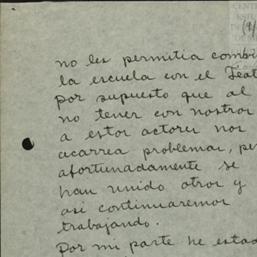 no les permitia combi
la escuela con el Teat
por supuesto que al
no tener con nostros
a estos actores nos
acarrea problemas, pe
afortunadamente se
han unido otros y
asi continuaremos
trabajando.
Por mi parte he estad